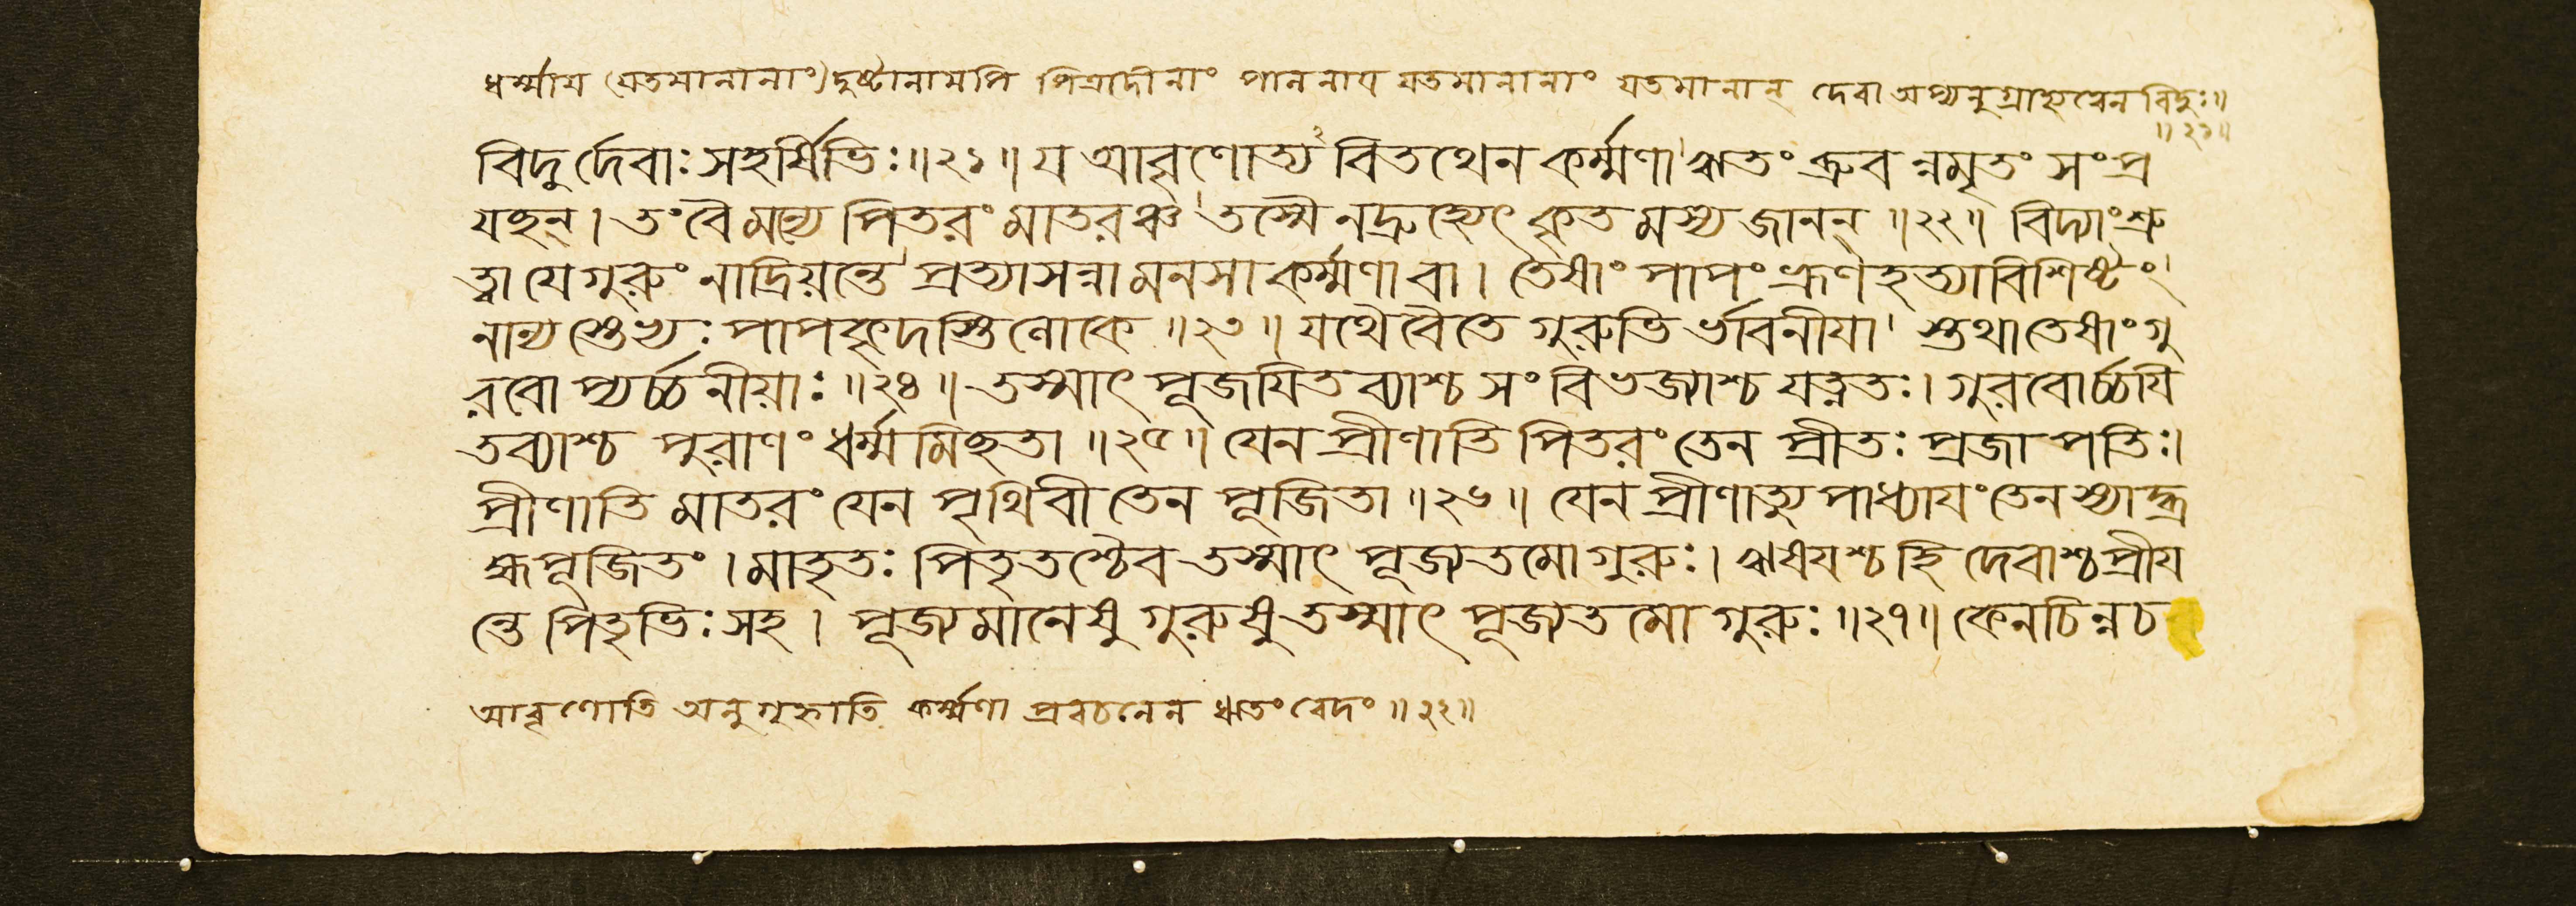 ধর্ম্মায় (যেতমানানাং) দুষ্টানামপি পিত্রাদীনাং পাননায যতমানানাং যতমানান্ দেবা অপ্যনুগ্রাহ্যত্বেন বিদুঃ॥
॥২১॥
বিদুর্দেবাঃ সহর্ষিভিঃ॥২১॥ য আবৃণোত্য২বিতথেন কর্ম্মণা' ঋতং ব্রুবন্নমৃতং সংপ্র
যছন্। তং বৈ মন্যে পিতরং মাতরঞ্চ' তস্মৈ নদ্রুহ্যেৎ কৃতমস্য জানন্॥২২॥ বিদ্যাং শ্রু
ত্বা যে গুরুং নাদ্রিয়ন্তে' প্রত্যাসন্না মনসা কর্ম্মণা বা। তেষাং পাপং ভ্রূণহত্যাবিশিষ্টং'
নান্যস্তেভ্যঃ পাপকৃদস্তি লোকে॥২৩॥ যথৈবৈতে গুরুভির্ভাবনীযা' স্তথা তেষাং গু
রবোপ্যর্চ্চনীয়াঃ॥২৪॥ তস্মাৎ পূজযিতব্যাশ্চ সংবিভজ্যাশ্চ যত্নতঃ। গুরবোর্চ্চযি
তব্যাশ্চ পুরাণং ধর্ম্মমিছতা॥২৫॥ যেন প্রীণাতি পিতরং তেন প্রীতঃ প্রজাপতিঃ।
প্রীণাতি মাতরং যেন পৃথিবী তেন পূজিতা॥২৬॥ যেন প্রীণাত্যুপাধ্যাযং তেন স্যাদ্ব্র
হ্মপূজিতং। মাতৃতঃ পিতৃতশ্চৈব তস্মাৎ পূজ্যতমো গুরুঃ। ঋষযশ্চ হি দেবাশ্চ প্রীয
ন্তে পিতৃভিঃ সহ। পূজ্যমানেষু গুরুষু তস্মাৎ পূজ্যতমো গুরুঃ॥২৭॥ কেনচিন্নচ
আবৃণোতি অনুগৃহ্নাতি কর্ম্মণা প্রবচনেন ঋতং বেদং॥২২॥